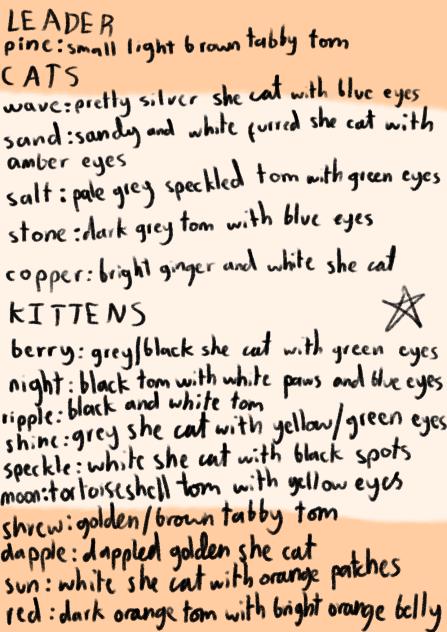 LEADER
pine: small light brown tabby tom
CATS
wave: pretty silver she cat with blue eyes
sand: sandy and white furred she cat with
amber eyes
salt: pale grey speckled tom with green eyes
stone: dark grey tom with blue eyes
copper: bright ginger and white she cat
KITTENS
berry: grey/black she cat with green eyes
night: black tom with white paws and blue eyes
ripple: black and white tom
shine: grey she cat with yellow/green eyes
speckle: white she cat with black spots
moon: tortoiseshell tom with yellow eyes
shrew: golden/brown tabby tom
dapple: dappled golden she cat
sun: white she cat with orange patches
red: dark orange tom with bright orange belly